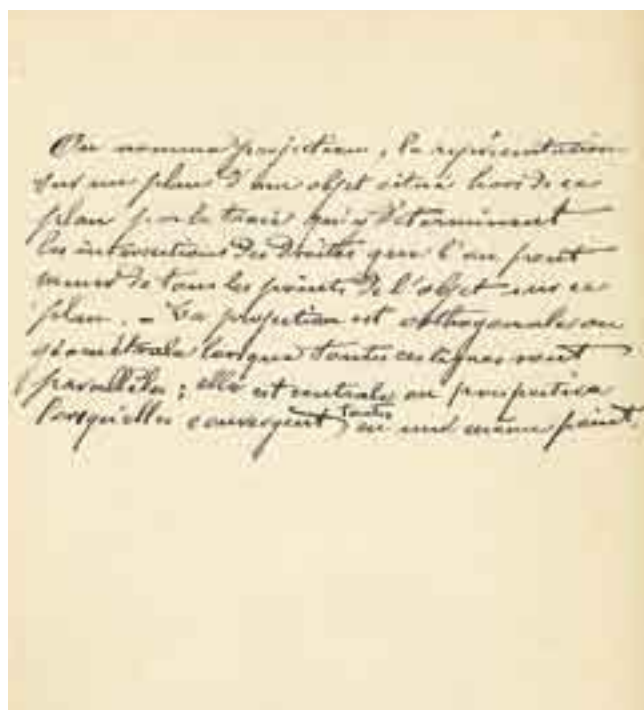 On nomme projection, la représentation
sur un plan d'un objet situé hors de ce
plan par le tracé qu'y déterminent
les intersections des droites que l'on peut
mener de tous les points de l'objet sur ce
plan. — La projection est orthogonale ou
géométrale lorsque toutes ces lignes sont
parallèles ; elle est centrale ou perspective
lorsqu'elles convergent toutes en un même point.